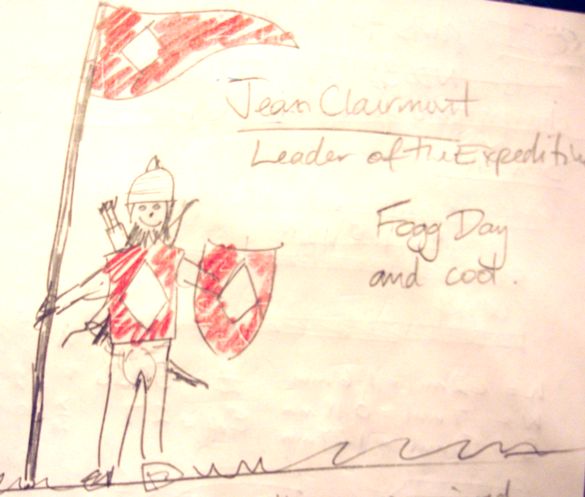 Jean Clairmont
Leader of the Expedition
Fogg Day
and cool.